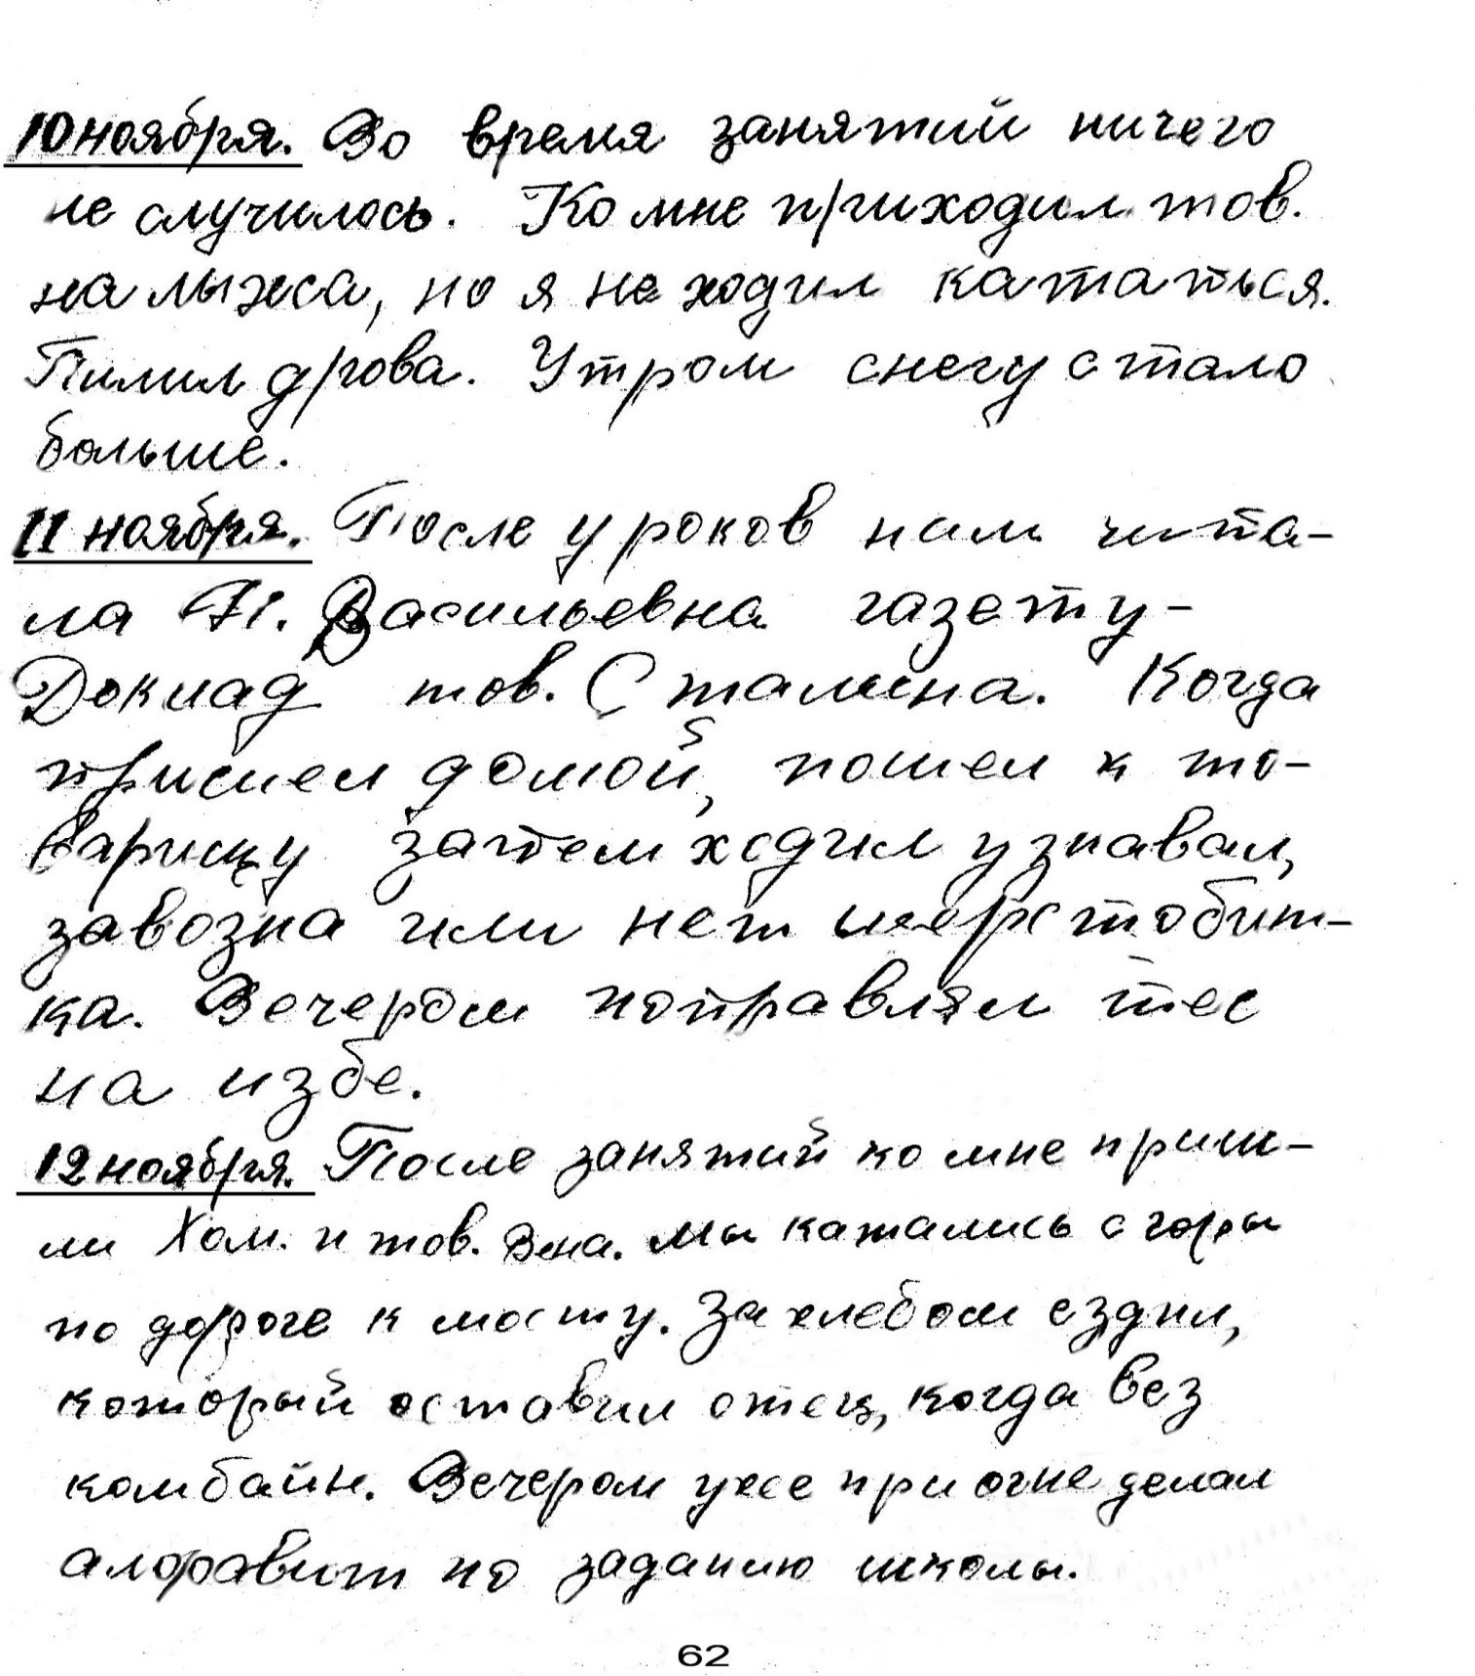 10 ноября. Во время занятий ничего
не случилось. Ко мне приходил тов.
на лыжса, но я не ходил кататься.
Пилил дрова. Утром снегу стало
больше.
11 ноября. После уроков нам чита-
ла А. Васильевна газету-
Доклад тов. Сталина. Когда
пришел домой, пошел к то-
варищу затем ходил узнавал,
завозна или нет шерстобит-
ка. Вечером поправлял тес
на избе.
12 ноября. После занятий ко мне приш-
ли Хом. и тов. Мы катались с горы
по дороге к мосту. За хлебом ездил,
который оставил отец, когда вез
комбайн. Вечером уже при огне делал
алфавит по заданию школы.
62